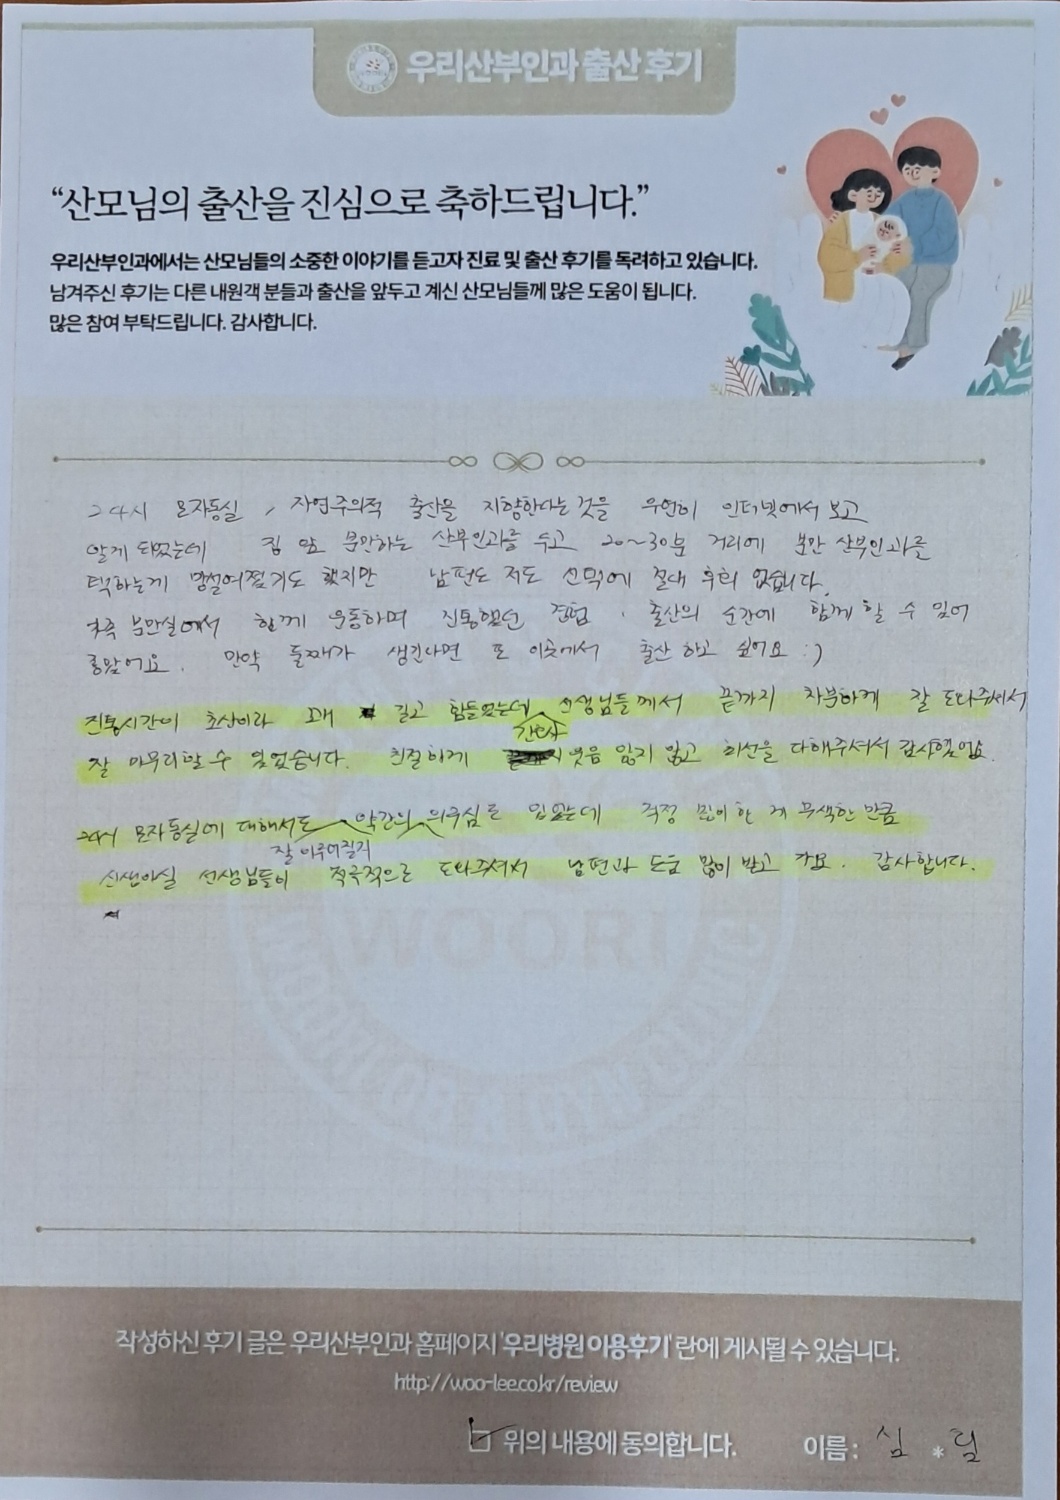 우리산부인과 출산 후기
“산모님의 출산을 진심으로 축하드립니다.”
우리산부인과에서는 산모님들의 소중한 이야기를 듣고자 진료 및 출산 후기를 독려하고 있습니다.
남겨주신 후기는 다른 내원객 분들과 출산을 앞두고 계신 산모님들께 많은 도움이 됩니다.
많은 참여 부탁드립니다. 감사합니다.
24시 모자동실, 자연주의적 출산을 지향한다는 것을 우연히 인터넷에서 보고
알게 되었는데 집 앞 분만하는 산부인과를 두고 20~30분 거리에 분만 산부인과를
택하는게 망설여졌기도 했지만 남편도 저도 선택에 절대 후회 없습니다.
가족 분만실에서 함께 운동하며 진통했던 경험, 출산의 순간에 함께 할 수 있어
좋았어요. 만약 둘째가 생긴다면 또 이곳에서 출산 하고 싶어요 :)
진통시간이 초산이라 꽤 길고 힘들었는데 간호사 선생님들께서 끝까지 차분하게 잘 도와주셔서
잘 마무리할 수 있었습니다. 친절하게 웃음 잃지 않고 최선을 다해주셔서 감사했어요.
24시 모자동실에 대해서도 잘 이루어질지 약간의 의구심도 있었는데 걱정 많이 한 게 무색할 만큼
신생아실 선생님들이 적극적으로 도와주셔서 남편과 도움 많이 받고 가요. 감사합니다.
WOORI
작성하신 후기 글은 우리산부인과 홈페이지 '우리병원 이용후기' 란에 게시될 수 있습니다.
http://woo-lee.co.kr/review
위의 내용에 동의합니다. 이름 : 심 *